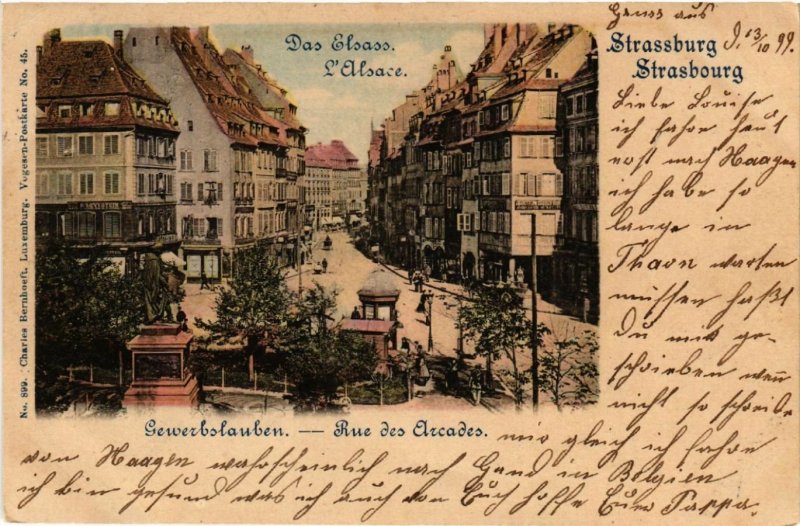 Gruss aus
Strassburg d. 13/10 99.
Strasbourg
Das Elsass.
L'Alsace.
No. 899. Charles Bernhoeft, Luxemburg. Vogesen-Postkarte No. 45.
Liebe Louise
ich fahre heut
erst nach Haagen
ich habe so
lange in
Thaon warten
müssen hast
Du mir ge-
schrieben wenn
nicht so schreibe
Gewerbslauben. — Rue des Arcades.
mir gleich ich fahre
von Haagen wahrscheinlich nach Gand in Belgien
ich bin gesund was ich auch von Euch hoffe Euer Pappa.